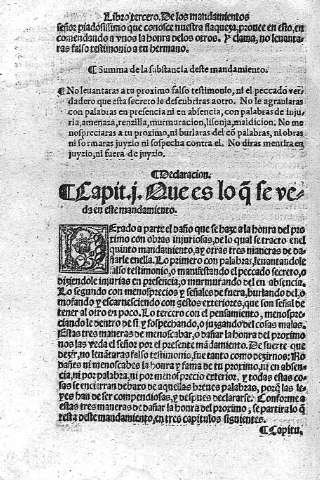 Libro tercero. De los mandamientos
señor piadosissimo que conosce nuestra flaqueza, prouee en esto, en
comendando a vnos la honra delos otros. Y clama, no leuanta-
ras falso testimonio a tu hermano.
¶ Summa de la substancia deste mandamiento.
¶ No leuantaras a tu proximo falso testimonio, ni el peccado ver-
dadero que esta secreto le descubriras a otro. No le agrauiaras
con palabras en presencia ni en absencia, con palabras de inju-
ria, amenaza, renzilla, murmuracion, lisonja, maldicion. No me
nospreciaras a tu proximo, ni burlaras del cõ palabras, ni obras
ni formaras juyzio ni sospecha contra el. No diras mentira en
juyzio, ni fuera de juyzio.
¶ Declaracion.
¶ Capit. j. Que es lo q̃ se ve-
da en este mandamiento.
parte el daño que se haze a la honra del pro
ximo con obras injuriosas, de lo qual se tracto enel
quinto mandamiento, ay otras tres maneras de da-
ñarle enella. Lo primero con palabras, leuantandole
falso testimonio, o manifestando el peccado secreto, o
diziendole injurias en presencia, o murmurando del en absencia.
Lo segundo con menosprecios y señales de fuera, burlando del, o
mofando y escarnesciendo con gestos exteriores, que son señal de
tener al otro en poco. Lo tercero con el pensamiento, menospre-
ciando le dentro de si y sospechando, o juzgando del cosas malas.
Estas tres maneras de menoscabar, o dañar la honra del proximo
nos las veda el señor por el presente mãdamiento. De suerte que
dezir, no leuãtaras falso testimonio, fue tanto como dezirnos: No
dañes ni menoscabes la honra y fama de tu proximo, ni en absen-
cia, ni por palabra, ni por menosprecio exterior. y todas estas co-
sas se encierran debaxo de aquellas breues palabras, porq̃ las le-
yes han de ser compendiosas, y despues declararse. Conforme a
estas tres maneras de dañar la honra del proximo, se partira lo q̃
resta deste mandamiento, en tres capitulos siguientes.
¶ Capitu.